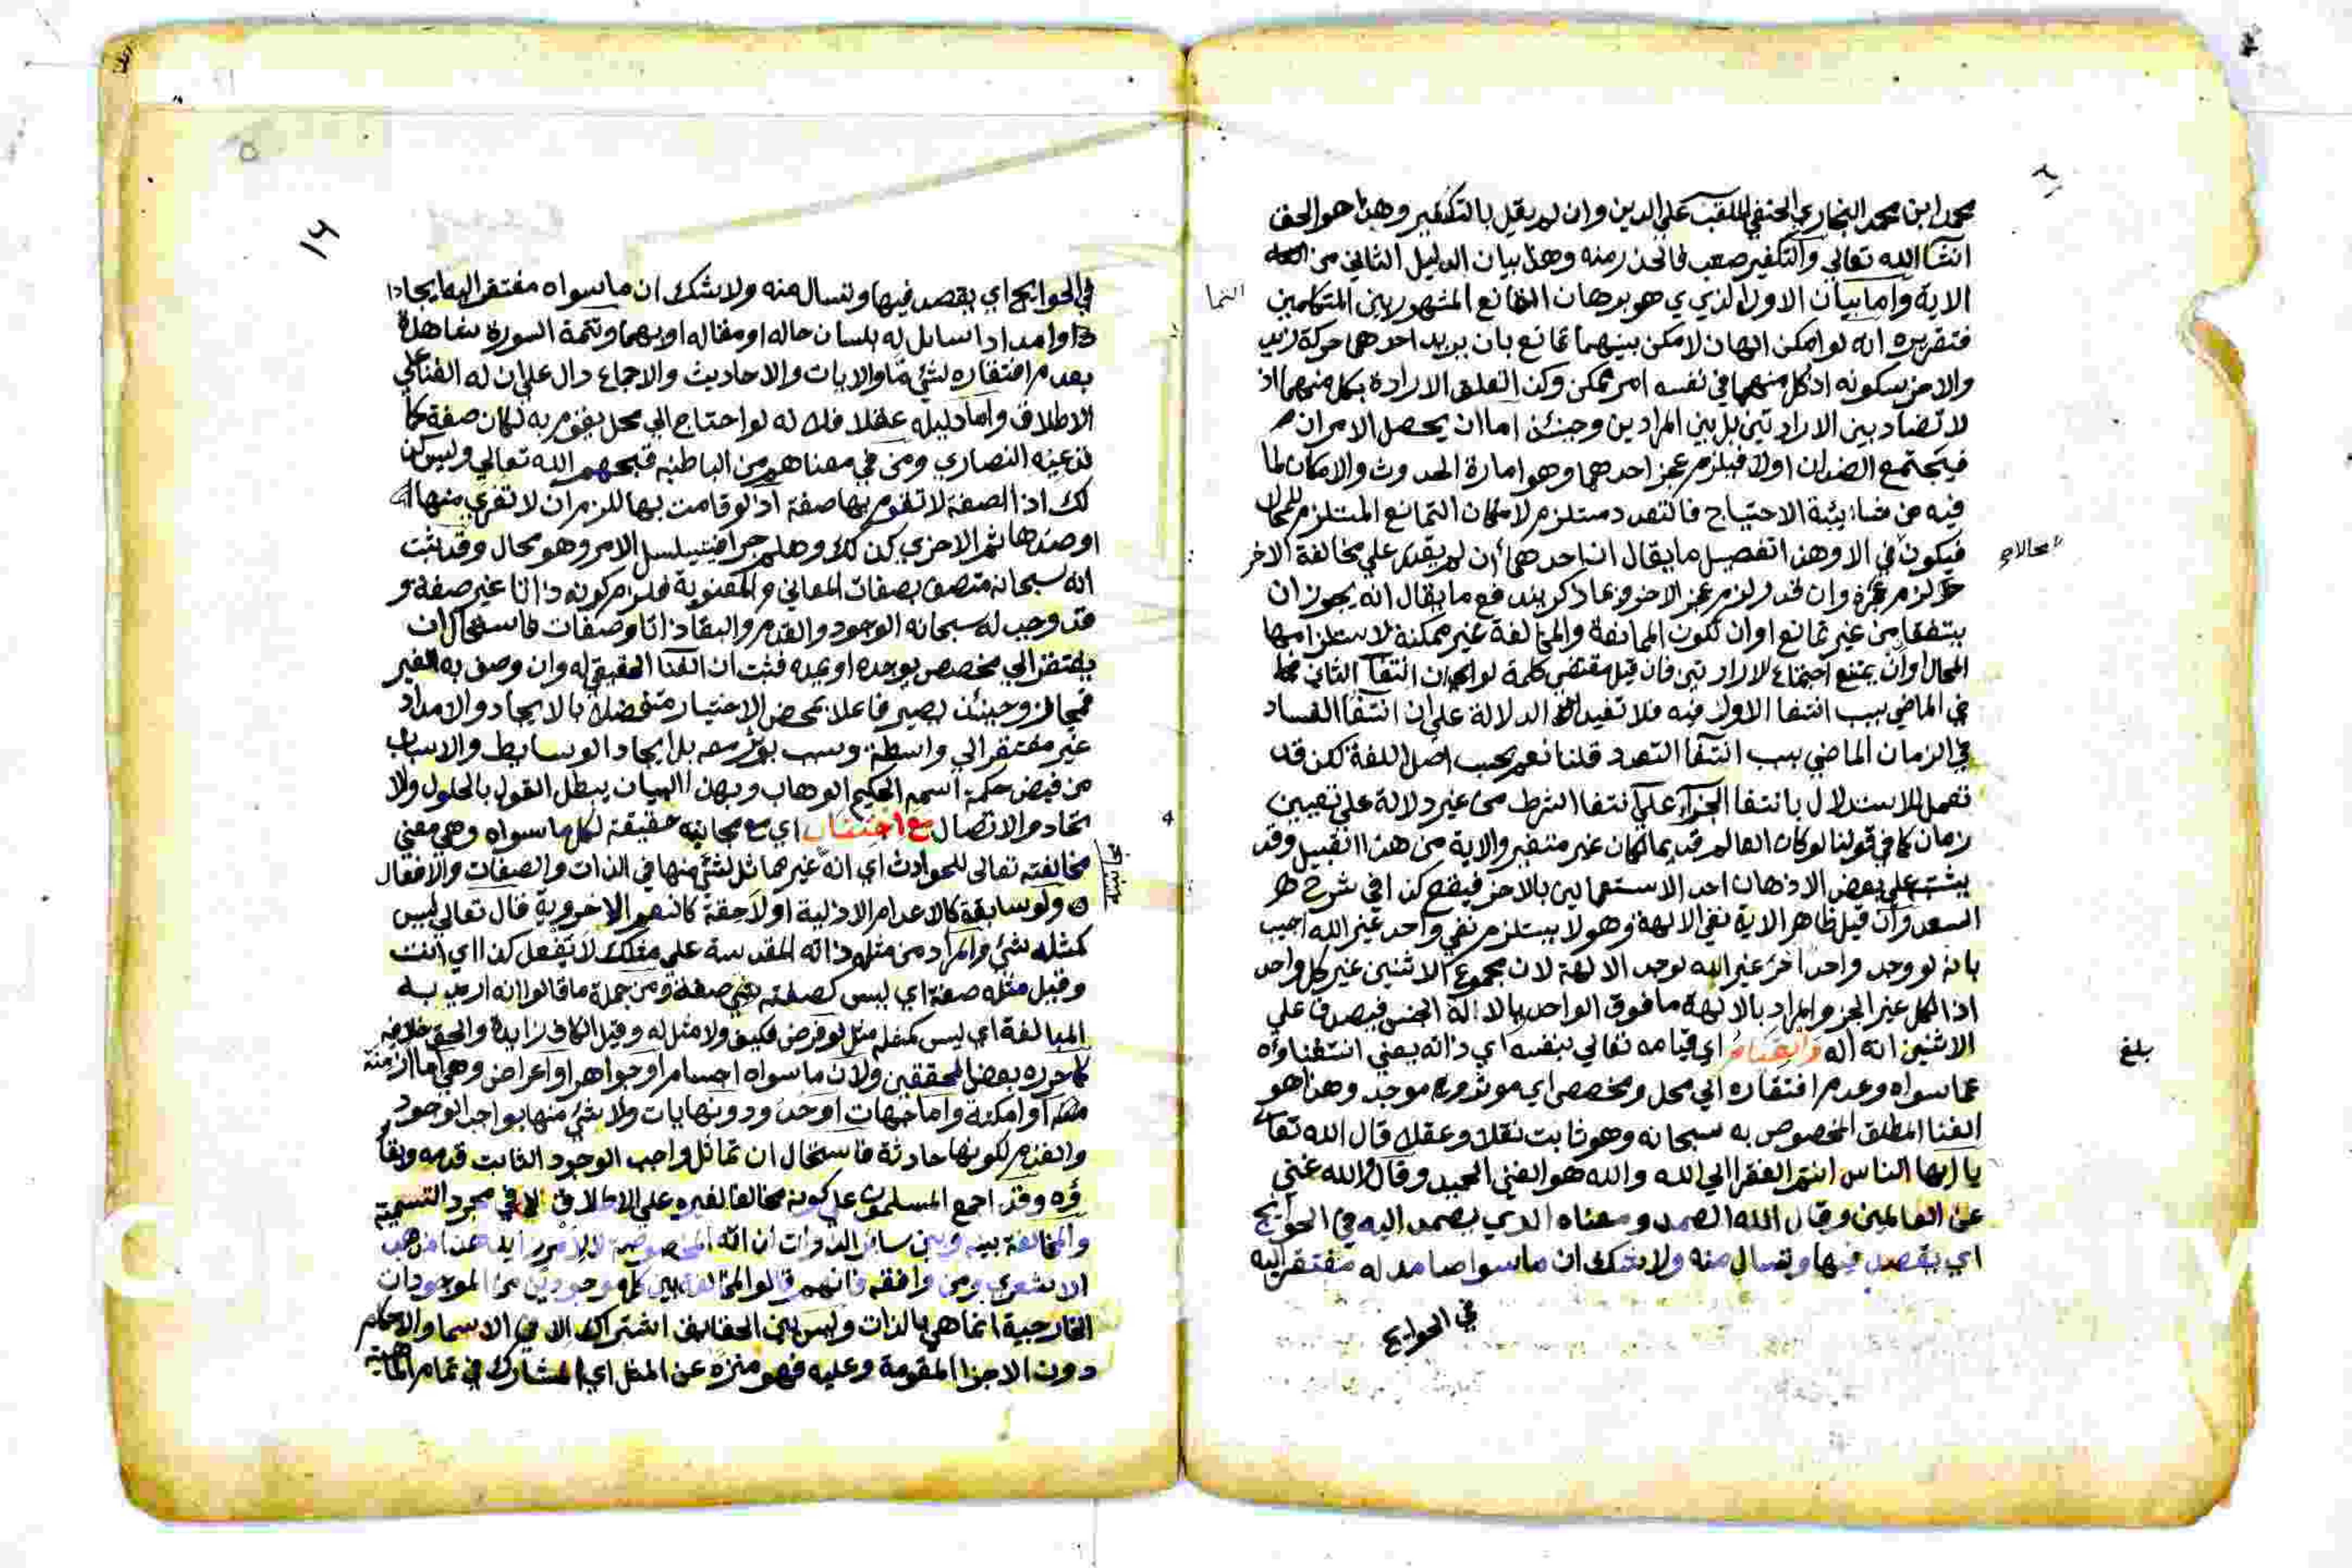 محمد ابن محمد البخاري الحنفي الملقب علي الدين وان لم يقل بالتكفير وهذا هو الحق
انشا الله تعالي والتكفير صعب فالحذر منه وهذا بيان الدليل الثاني من
الاية واما بيان الاول الذي هو برهان التمانع المشهور بين المتكلمين
فتقريره انه لو امكن الهان لامكن بينهما تمانع بان يريد احدهما حركة زيد
والاخر سكونه اذ كل منهما في نفسه امر ممكن وكذا تعلق الارادة بكل منهما اذ
لا تضاد بين الارادتين بل بين المرادين وحينئذ اما ان يحصل الامران
فيجتمع الضدان اولا فيلزم عجز احدهما وهو امارة الحدوث والامكان لما
فيه من شايبة الاحتياج فالتعدد مستلزم لامكان التمانع المستلزم للمحال
فيكون في الا وهذا تفصيل ما يقال ان احدهما ان لم يقدر علي مخالفة الاخر
لزم عجزه وان قدر لزم عجز الاخر وبما ذكر يندفع ما يقال انه يجوز ان
يتفقا من غير تمانع او ان تكون الممانعة والمخالفة غير ممكنة لاستلزامها
المحال او ان يمتنع اجتماع الارادتين فان قيل مقتضي كلمة لو ان انتفا الثاني
في الماضي بسبب انتفا الاول فيه فلا تفيد الا الدلالة علي ان انتفا الفساد
في الزمان الماضي بسبب انتفا التعدد قلنا نعم بحسب اصل اللغة لكن قد
تعمل للاستدلال بانتفا الجزاء علي انتفا الشرط من غير دلالة علي تعيين
زمان كما في قولنا لو كان العالم قديما لكان غير متغير والاية من هذا القبيل وقد
يشتبه علي بعض الاذهان احد الاستعمالين بالاخر فيقع كذا في شرح
السعد وان قيل ظاهر الاية نفي الالهة وهو لا يستلزم نفي واحد غير الله اجيب
بانه لو وجد واحد اخر غير الله لوجد الالهة لان مجموع الاثنين غير كل واحد
اذ الكل غير الجز والمراد بالالهة ما فوق الواحد بالاله الجنس فيصدق علي
الاثنين انه اله والقيام اي قيامه تعالي بنفسه اي ذاته يعني استغناؤه
عما سواه وعدم افتقاره الي محل ومخصص اي موثر وموجد وهذا هو
الغنا المطلق المخصوص به سبحانه وهو ثابت نقلا وعقلا قال الله تعالي
يا ايها الناس انتم الفقرا الي الله والله هو الغني الحميد وقال والله غني
عن العالمين وقال الله الصمد ومعناه الذي يصمد اليه في الحوايج
اي يقصد فيها ويسال منه ولا شك ان ما سوا صامد له مفتقر اليه
في الحوايج
بلغ
في الحوايج اي يقصد فيها وتسال منه ولا شك ان ما سواه مفتقر اليه ايجادا
وامدادا سايل له بلسان حاله او مقاله او بهما وتتمة السورة شاهدة
بعدم افتقاره لشي ما والايات والاحاديث والاجماع دال علي ان له الغنا علي
الاطلاق واما دليله عقلا فلانه لو احتاج الي محل يقوم به لكان صفة كما
تدعيه النصاري ومن في معناهم من الباطنية قبحهم الله تعالي وليس كذ
لك اذ الصفة لا تقوم بها صفة اذ لو قامت بها للزم ان لا تعري منها
او ضدها ثم الاخري كذلك وهلم جرا فيتسلسل الامر وهو محال وقد ثبت
انه سبحانه متصف بصفات المعاني والمعنوية فلزم كونه ذاتا غير صفة و
قد وجب له سبحانه الوجود والقدم والبقا ذاتا وصفات فاستحال ان
يفتقر الي مخصص يوجده او يمده فثبت ان الغنا الحقيقي له وان وصف به الغير
فمجاز وحينئذ يصير فاعلا بمحض الاختيار متفضلا بالايجاد والامداد
غير مفتقر الي واسطة وسبب يوثر معه بل ايجاد الوسايط والاسباب
من فيض حكمة اسمه الحكيم الوهاب وبهذا البيان يبطل القول بالحلول والا
تحاد والاتصال مع اي مع مجانبته حقيقة لكل ما سواه وهي معني
مخالفته تعالي للحوادث اي انه غير مماثل لشي منها في الذات والصفات والافعال
ولو سابقة كالاعدام الازلية او لاحقة كالنعم الاخروية قال تعالي ليس
كمثله شي والمراد من مثله ذاته المقدسة علي مثلك لا يفعل كذا اي انت
وقيل مثله صفة اي ليس كصفته صفة ومن جملة ما قالوا انه اريد به
المبالغة اي ليس كمثله مثل لو فرض فكيف ولا مثل له وقيل الكاف زايدة والحق خلافه
كما حرره بعض المحققين ولان ما سواه اجسام او جواهر او اعراض وهي اما ازمنة
او امكنة واما جهات او حدود ونهايات ولا شي منها بواجب الوجود
والقدم لكونها حادثة فاستحال ان تماثل واجب الوجود الثابت قدمه وبقا
ؤه وقد اجمع المسلمون علي كونه مخالفا لغيره علي الاطلاق الا في مجرد التسمية
والمخالفة بينه وبين ساير الذوات لذاته المخصوصة لا لامر زايد هذا مذهب
الاشعري ومن وافقه فانهم قالوا المخالفة بين كل موجودين من الموجودات
الخارجية انما هي بالذات وليس بين الحقايق اشتراك الا في الاسما والاحكام
دون الاجزا المقومة وعليه فهو منزه عن المثل اي المشارك في تمام الماهية